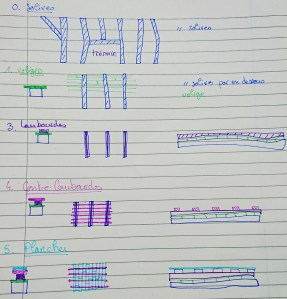 0. Solives
// solives
trémie
1. Voliges
// solives par en dessous
volige
3. Lambourdes
4. Contre Lambourdes
5. Plancher